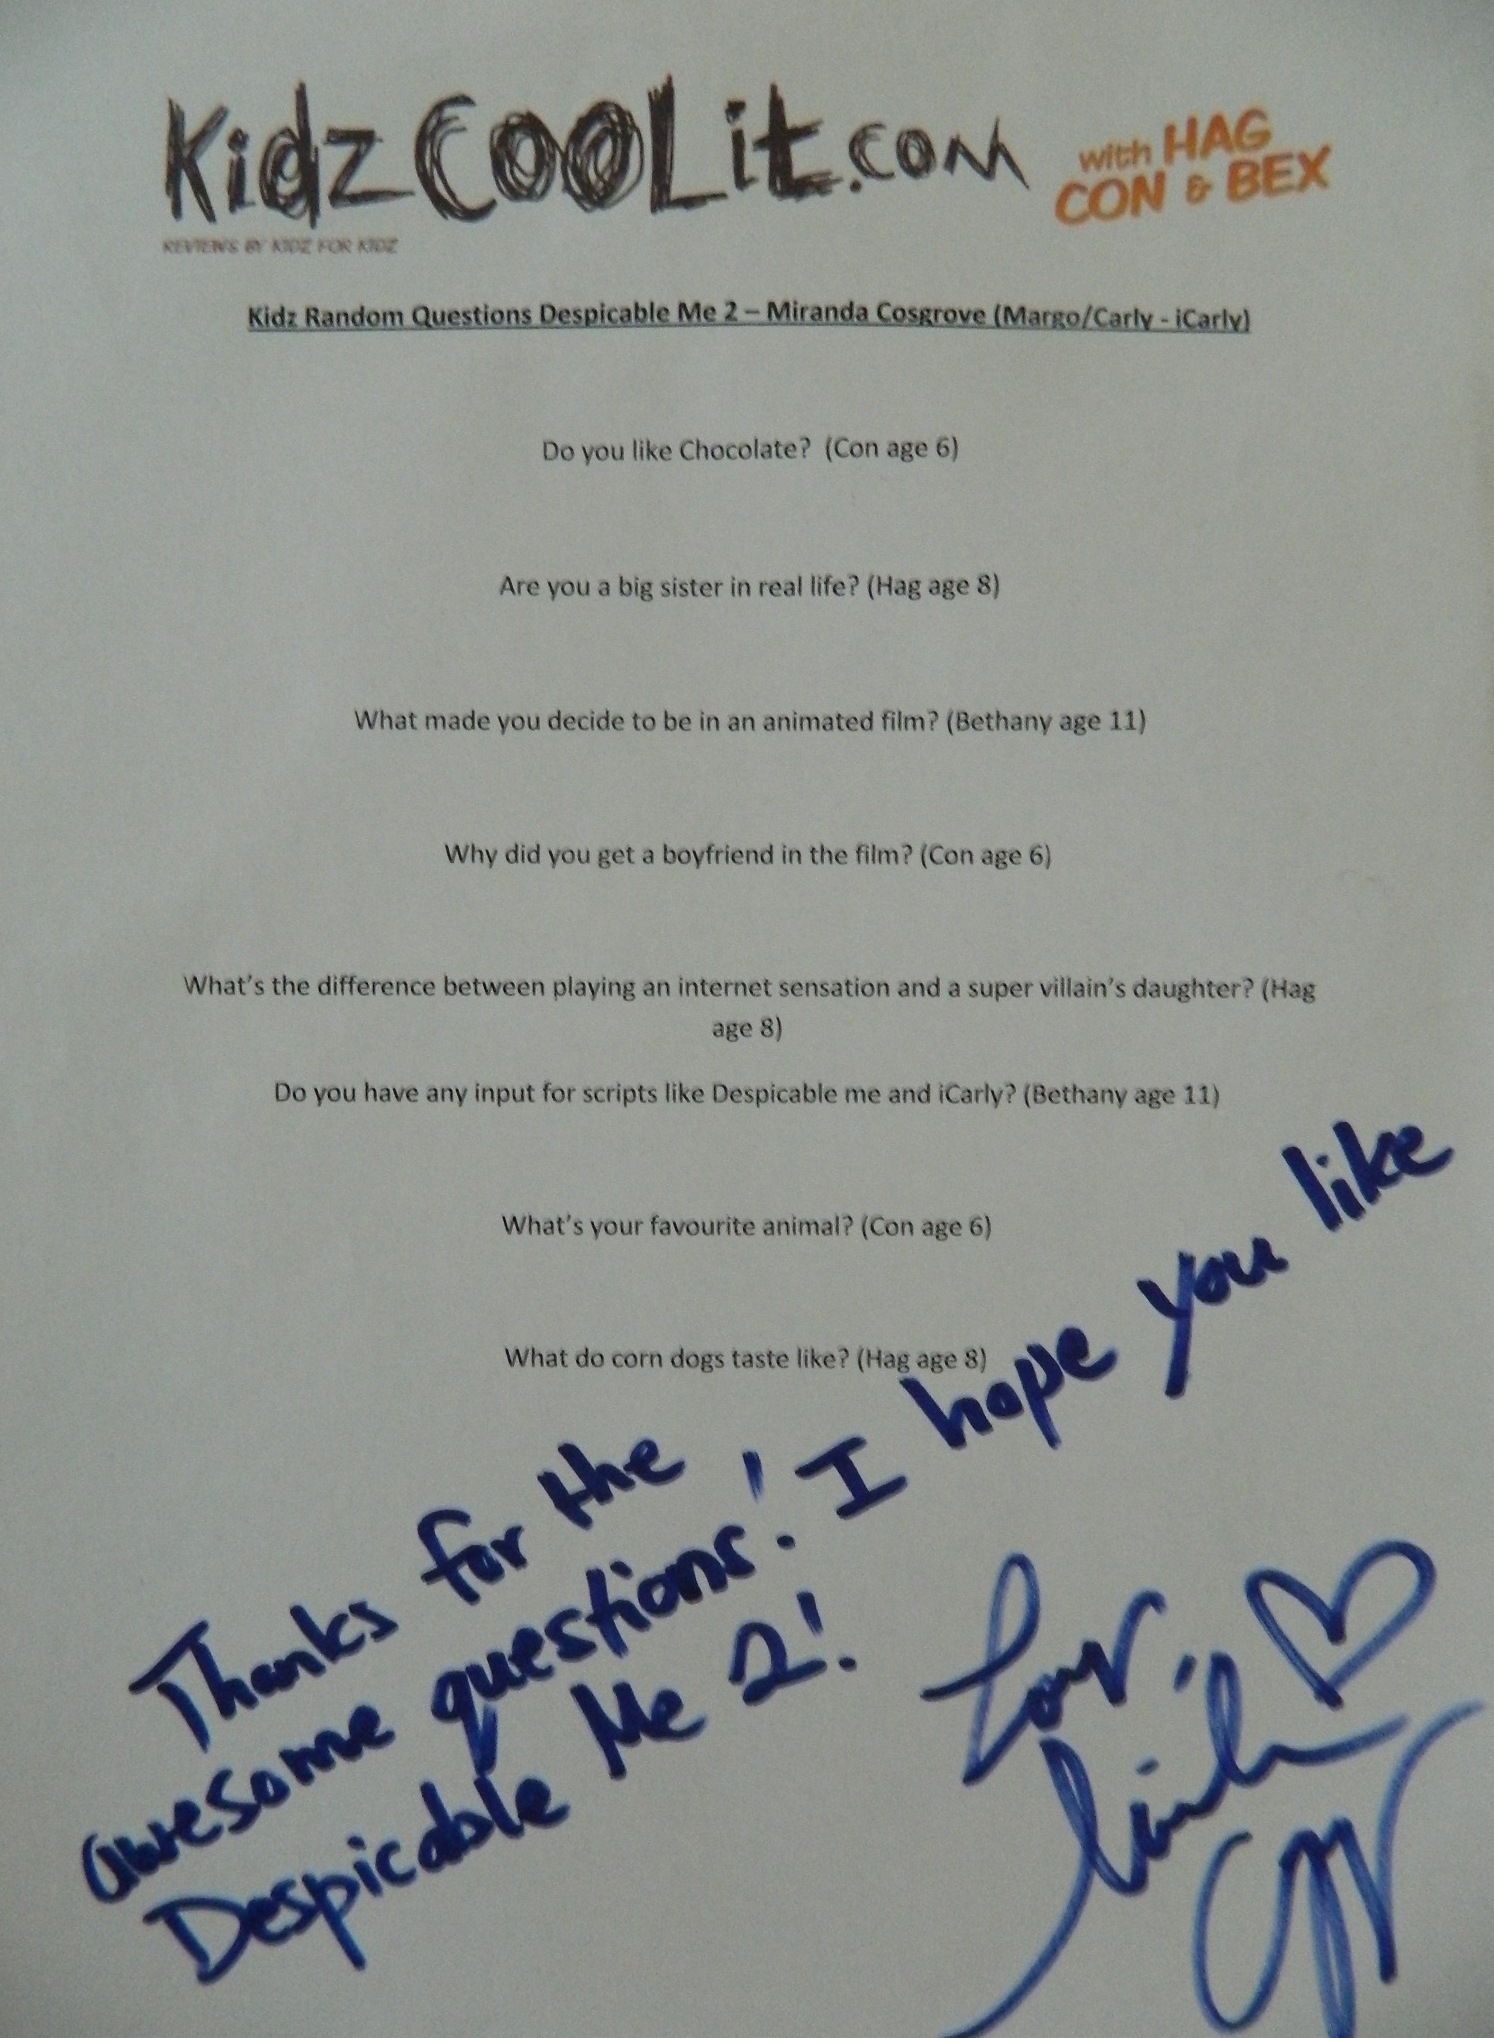 Kidz COOLit.com
with HAG
CON & BEX
REVIEWS BY KIDZ FOR KIDZ
Kidz Random Questions Despicable Me 2 – Miranda Cosgrove (Margo/Carly - iCarly)
Do you like Chocolate?  (Con age 6)
Are you a big sister in real life? (Hag age 8)
What made you decide to be in an animated film? (Bethany age 11)
Why did you get a boyfriend in the film? (Con age 6)
What's the difference between playing an internet sensation and a super villain's daughter? (Hag
age 8)
Do you have any input for scripts like Despicable me and iCarly? (Bethany age 11)
What's your favourite animal? (Con age 6)
What do corn dogs taste like? (Hag age 8)
Thanks for the
awesome questions! I hope you like
Despicable Me 2!
Love,